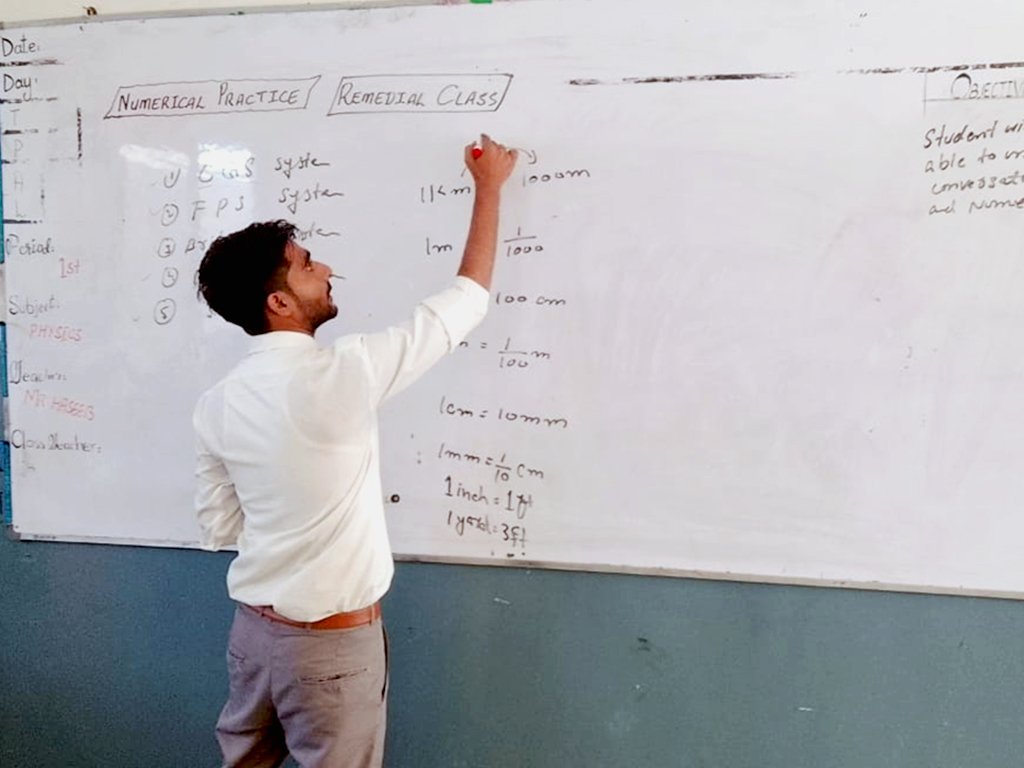 Date:
Day:
T
P
H
L
Period:
1st
Subject:
PHYSICS
Teacher:
Mr HASEEB
Class Teacher:
NUMERICAL PRACTICE
REMEDIAL CLASS
1) system
2) FPS system
3)
5)
1Km 1000m
1m 1/1000
100 cm
= 1/100 m
1cm = 10mm
1mm = 1/10 cm
1 inch = 1 ft
1 yard = 3ft
OBJECTIV
Student wi
able to
and Nume